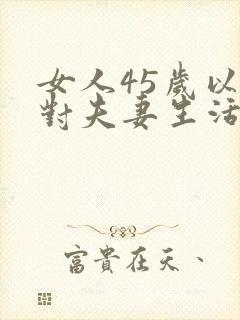 女人45歲以
對夫妻生活
富貴在天、